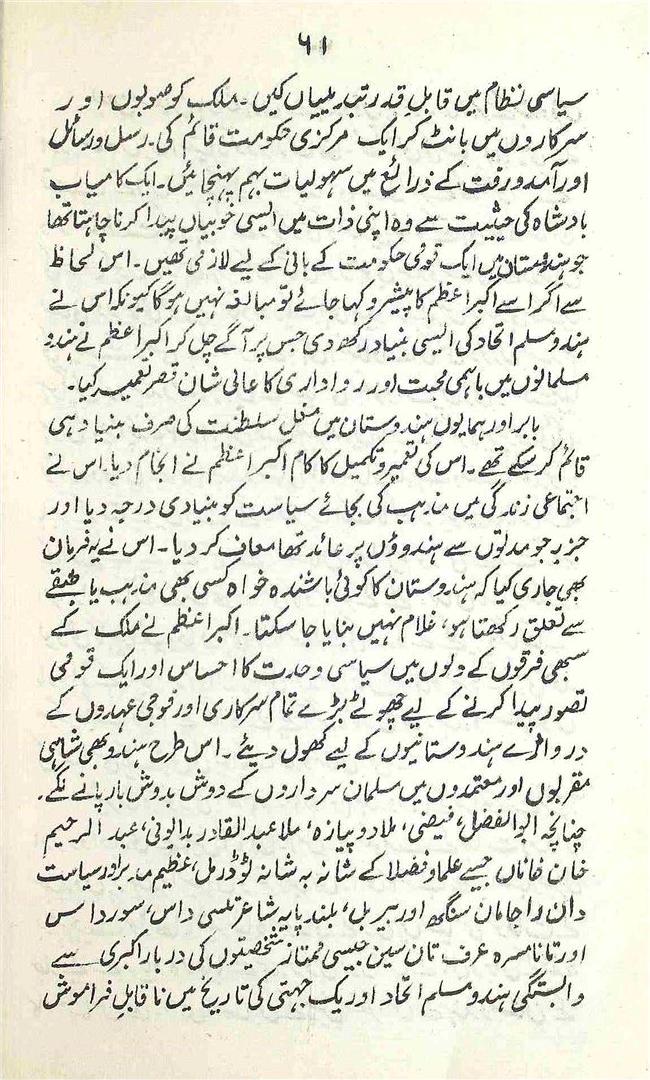 ۶۱
سیاسی نظام میں قابلِ قدر تبدیلیاں کیں۔ ملک کو صوبوں اور
سرکاروں میں بانٹ کر ایک مرکزی حکومت قائم کی۔ رسل و رسائل
اور آمد و رفت کے ذرائع میں سہولیات بہم پہنچائیں۔ ایک کامیاب
بادشاہ کی حیثیت سے وہ اپنی ذات میں ایسی خوبیاں پیدا کرنا چاہتا تھا
جو ہندوستان میں ایک قومی حکومت کے بانی کے لیے لازمی تھیں۔ اس لحاظ
سے اگر اسے اکبراعظم کا پیشرو کہا جائے تو مبالغہ نہیں ہوگا کیونکہ اس نے
ہندو مسلم اتحاد کی ایسی بنیاد رکھ دی جس پر آگے چل کر اکبراعظم نے ہندو
مسلمانوں میں باہمی محبت اور رواداری کا عالی شان قصر تعمیر کیا۔
بابر اور ہمایوں ہندوستان میں مغل سلطنت کی صرف بنیاد ہی
قائم کر سکے تھے۔ اس کی تعمیر و تکمیل کا کام اکبراعظم نے انجام دیا۔ اس نے
اجتماعی زندگی میں مذہب کی بجائے سیاست کو بنیادی درجہ دیا اور
جزیہ جو مدتوں سے ہندوؤں پر عائد تھا معاف کر دیا۔ اس نے یہ فرمان
بھی جاری کیا کہ ہندوستان کا کوئی باشندہ خواہ کسی بھی مذہب یا طبقے
سے تعلق رکھتا ہو، غلام نہیں بنایا جا سکتا۔ اکبراعظم نے ملک کے
سبھی فرقوں کے دلوں میں سیاسی وحدت کا احساس اور ایک قومی
تصور پیدا کرنے کے لیے چھوٹے بڑے تمام سرکاری اور فوجی عہدوں کے
دروازے ہندوستانیوں کے لیے کھول دیئے۔ اس طرح ہندو بھی شاہی
مقربوں اور معتمدوں میں مسلمان سرداروں کے دوش بدوش بار پانے لگے۔
چنانچہ ابوالفضل، فیضی، ملا دوپیازہ، ملا عبدالقادر بدایونی، عبدالرحیم
خان خاناں جیسے علما و فضلا کے شانہ بہ شانہ ٹوڈرمل، عظیم مدبر اور سیاست
دان راجا مان سنگھ اور بیربل، بلند پایہ شاعر تلسی داس، سورداس
اور تانا مصرہ عرف تان سین جیسی ممتاز شخصیتوں کی دربارِ اکبری سے
وابستگی ہندو مسلم اتحاد اور یک جہتی کی تاریخ میں ناقابلِ فراموش